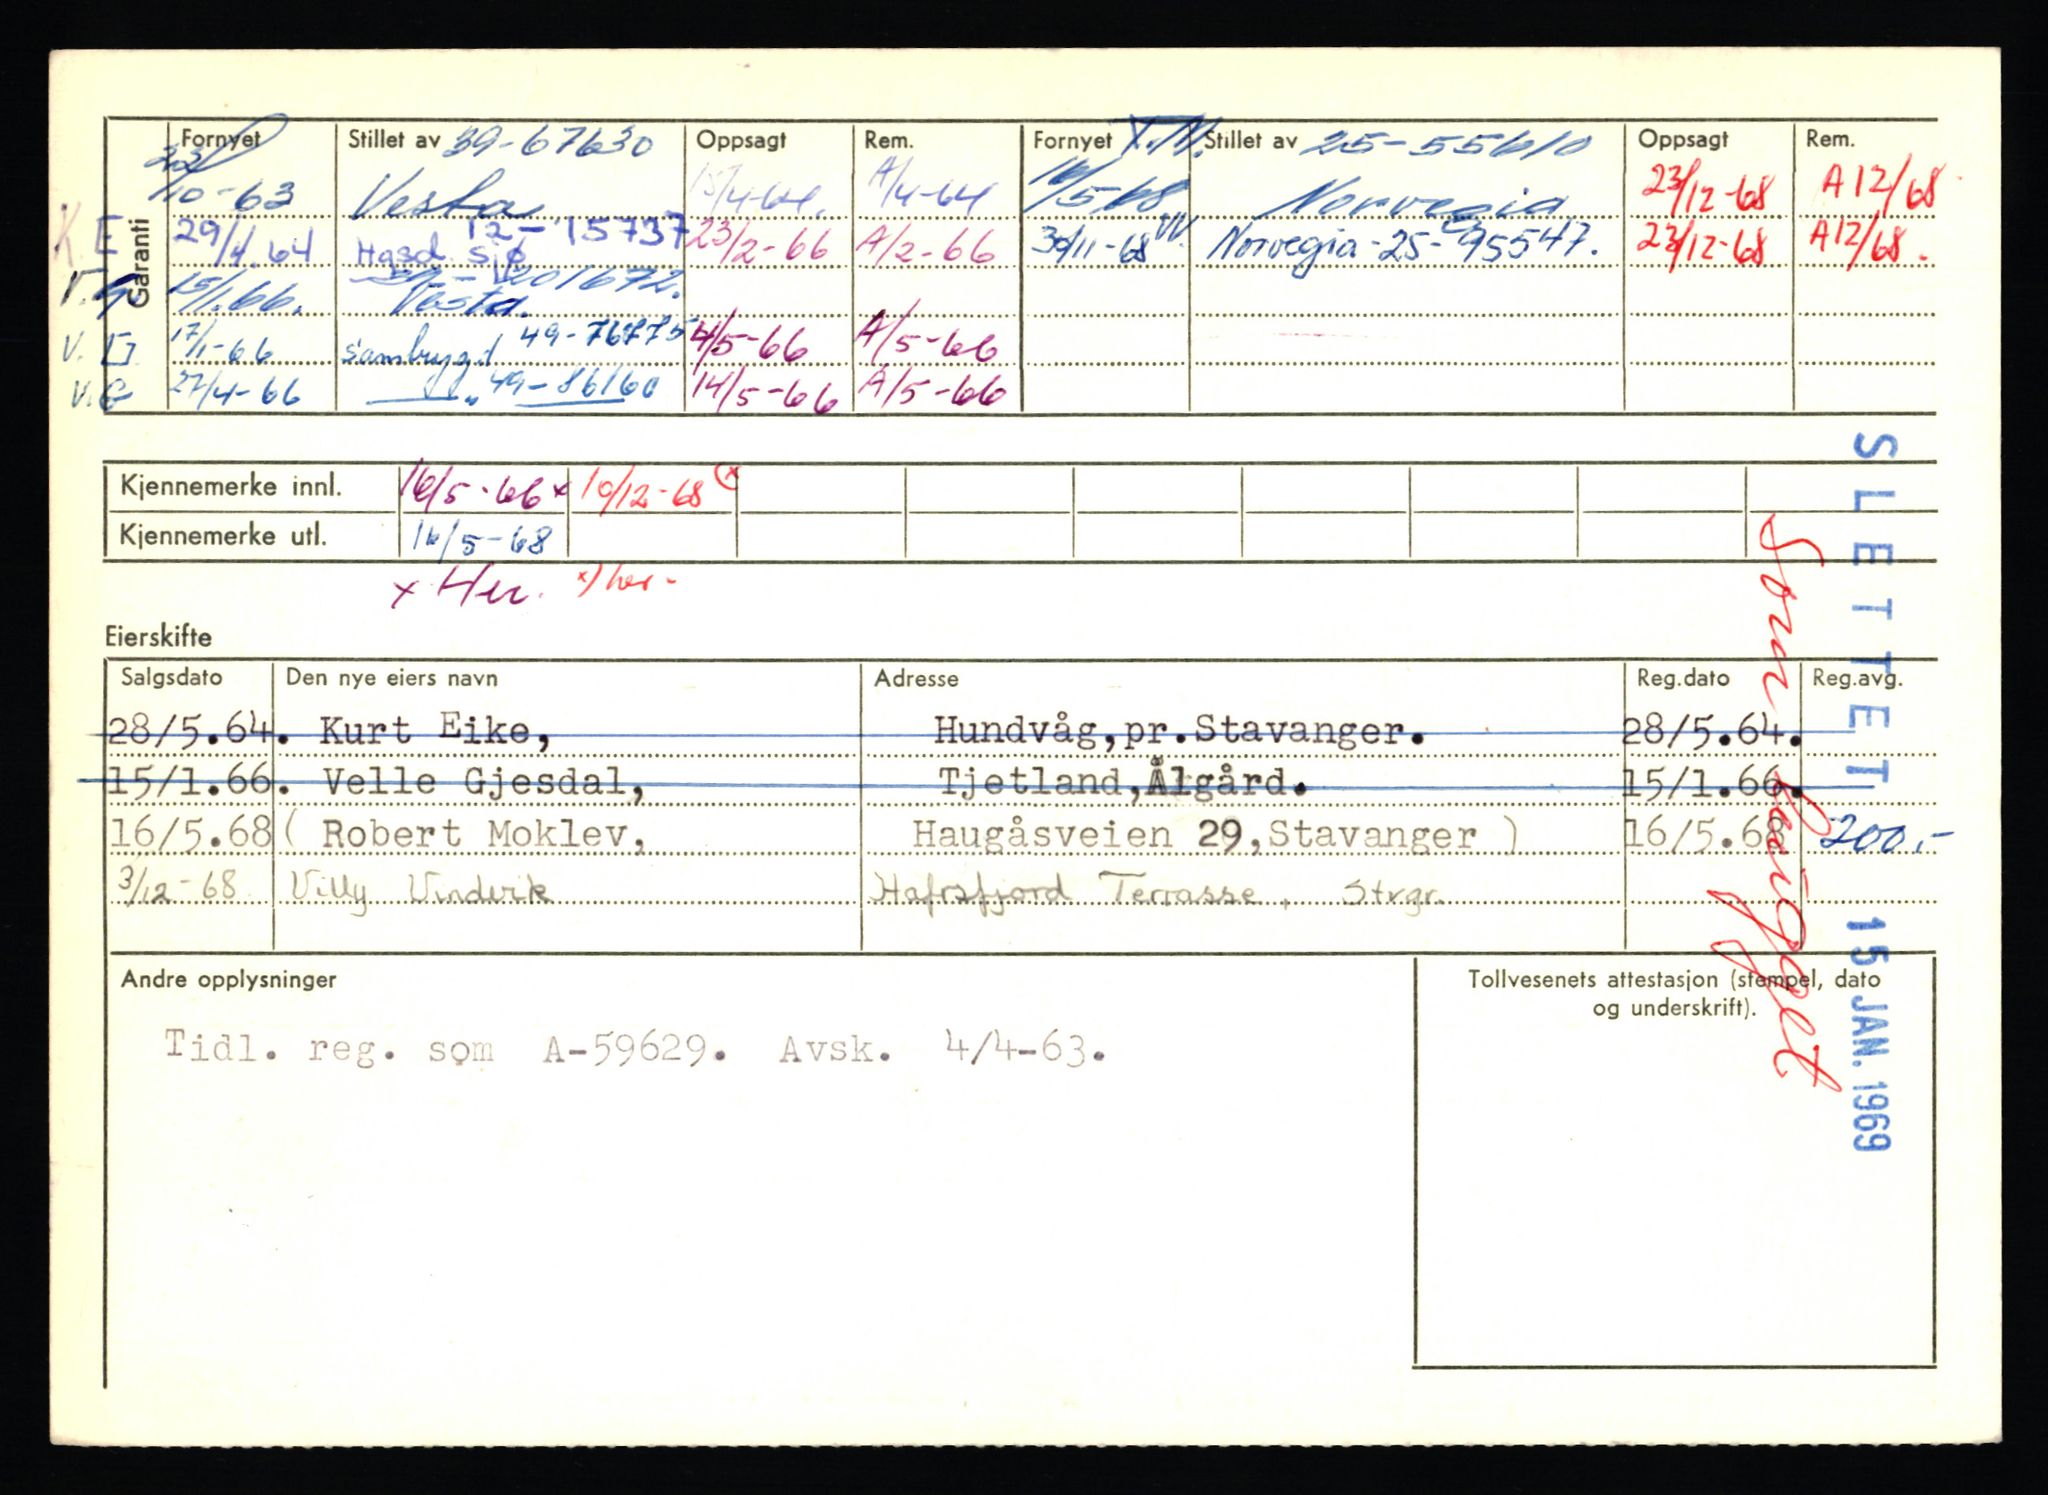 Garanti
Fornyet Stillet av 39-67630 Oppsagt Rem. Fornyet Stillet av 25-55610 Oppsagt Rem.
10-63 Vesta 15/4-64. A/4-64 16/5 68 Norvegia 23/12-68 A12/68
K.E 29/4.64 12-15737 Hgsd. Sjø 23/2-66 A/2-66 30/11-68 VV. Norvegia-25-95547. 23/12-68 A12/68.
V.G 15/1.66. 201672. Vesta.
V.G 17/1-66 Sambygd 49-76775 4/5-66 A/5-66
V.G 27/4-66 — „ 49-86160 14/5-66 A/5-66
Kjennemerke innl. 16/5-66 x 10/12-68 x
Kjennemerke utl. 16/5-68
x Her. x) her-
Eierskifte
Salgsdato Den nye eiers navn Adresse Reg.dato Reg.avg.
28/5.64. Kurt Eike, Hundvåg,pr.Stavanger. 28/5.64.
15/1.66. Velle Gjesdal, Tjetland,Ålgård. 15/1.66.
16/5.68 ( Robert Moklev, Haugåsveien 29,Stavanger ) 16/5.68 200,-
3/12-68 Villy Vindvik Hafrsfjord Terrasse, Strgr.
Andre opplysninger
Tidl. reg. som A-59629. Avsk. 4/4-63.
Tollvesenets attestasjon (stempel, dato
og underskrift).
SLETTET 15 JAN. 1969
Som